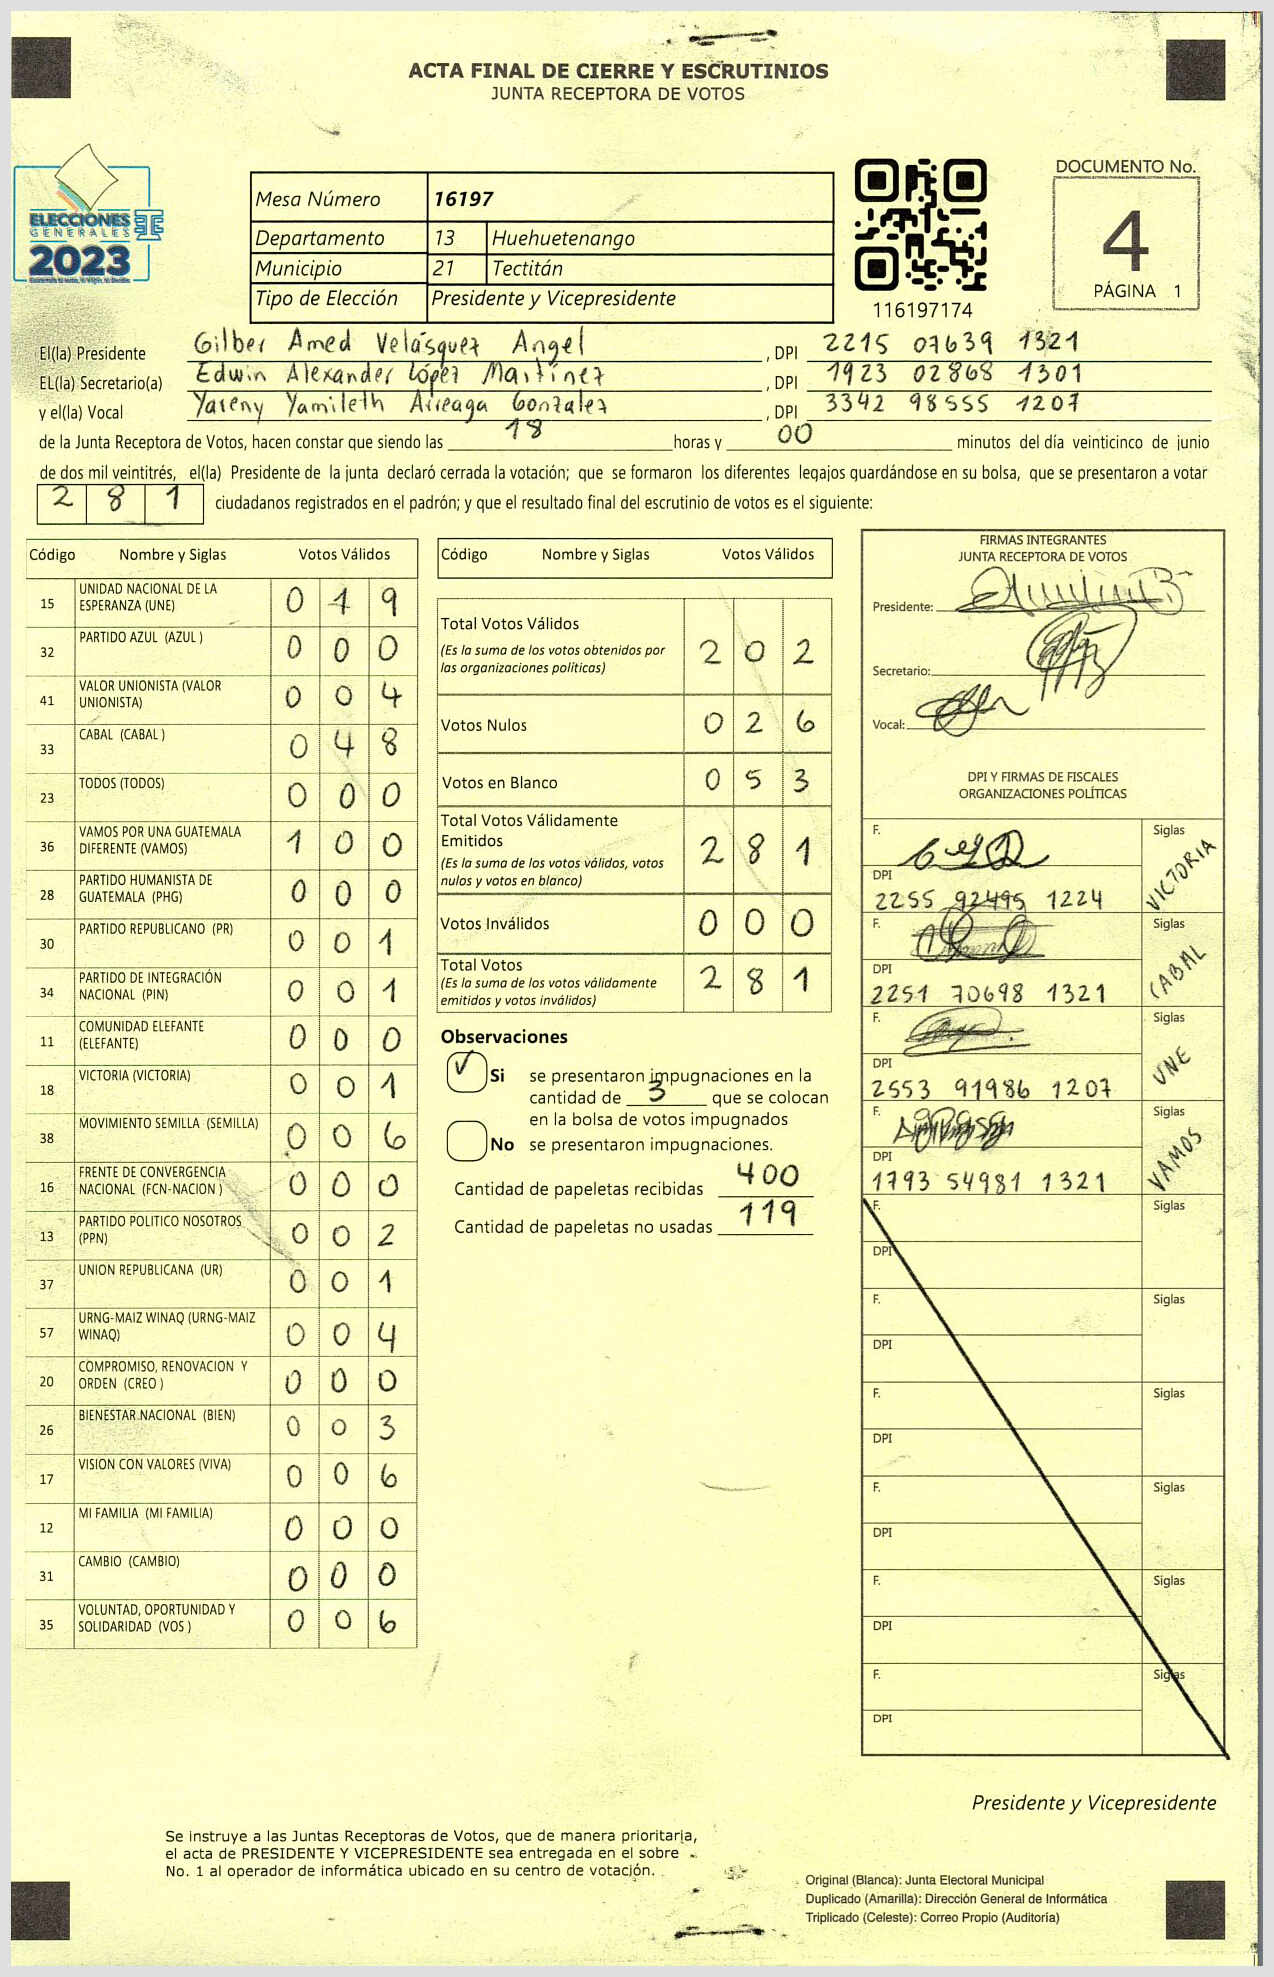 ACTA FINAL DE CIERRE Y ESCRUTINIOS
JUNTA RECEPTORA DE VOTOS
ELECCIONES
GENERALES
2023
Mesa Número 16197
Departamento 13 Huehuetenango
Municipio 21 Tectitán
Tipo de Elección Presidente y Vicepresidente
116197174
DOCUMENTO No.
4
PÁGINA 1
El(la) Presidente Gilber Amed Velásquez Angel , DPI 2215 07639 1321
EL(la) Secretario(a) Edwin Alexander López Martínez , DPI 1923 02868 1301
y el(la) Vocal Yareny Yamileth Arreaga Gonzalez , DPI 3342 98555 1207
de la Junta Receptora de Votos, hacen constar que siendo las 18 horas y 00 minutos del día veinticinco de junio
de dos mil veintitrés, el(la) Presidente de la junta declaró cerrada la votación; que se formaron los diferentes legajos guardándose en su bolsa, que se presentaron a votar
281 ciudadanos registrados en el padrón; y que el resultado final del escrutinio de votos es el siguiente:
Código Nombre y Siglas Votos Válidos
15 UNIDAD NACIONAL DE LA ESPERANZA (UNE) 019
32 PARTIDO AZUL (AZUL ) 000
41 VALOR UNIONISTA (VALOR UNIONISTA) 004
33 CABAL (CABAL ) 048
23 TODOS (TODOS) 000
36 VAMOS POR UNA GUATEMALA DIFERENTE (VAMOS) 100
28 PARTIDO HUMANISTA DE GUATEMALA (PHG) 000
30 PARTIDO REPUBLICANO (PR) 001
34 PARTIDO DE INTEGRACIÓN NACIONAL (PIN) 001
11 COMUNIDAD ELEFANTE (ELEFANTE) 000
18 VICTORIA (VICTORIA) 001
38 MOVIMIENTO SEMILLA (SEMILLA) 006
16 FRENTE DE CONVERGENCIA NACIONAL (FCN-NACION ) 000
13 PARTIDO POLITICO NOSOTROS (PPN) 002
37 UNION REPUBLICANA (UR) 001
57 URNG-MAIZ WINAQ (URNG-MAIZ WINAQ) 004
20 COMPROMISO, RENOVACION Y ORDEN (CREO ) 000
26 BIENESTAR NACIONAL (BIEN) 003
17 VISION CON VALORES (VIVA) 006
12 MI FAMILIA (MI FAMILIA) 000
31 CAMBIO (CAMBIO) 000
35 VOLUNTAD, OPORTUNIDAD Y SOLIDARIDAD (VOS ) 006
Código Nombre y Siglas Votos Válidos
Total Votos Válidos 202
(Es la suma de los votos obtenidos por
las organizaciones políticas)
Votos Nulos 026
Votos en Blanco 053
Total Votos Válidamente
Emitidos 281
(Es la suma de los votos válidos, votos
nulos y votos en blanco)
Votos Inválidos 000
Total Votos 281
(Es la suma de los votos válidamente
emitidos y votos inválidos)
Observaciones
Si se presentaron impugnaciones en la
cantidad de 3 que se colocan
en la bolsa de votos impugnados
No se presentaron impugnaciones.
Cantidad de papeletas recibidas 400
Cantidad de papeletas no usadas 119
FIRMAS INTEGRANTES
JUNTA RECEPTORA DE VOTOS
Presidente:
Secretario:
Vocal:
DPI Y FIRMAS DE FISCALES
ORGANIZACIONES POLÍTICAS
F. Siglas VICTORIA
DPI
2255 92495 1224
F. Siglas CABAL
DPI
2251 70698 1321
F. Siglas UNE
DPI
2553 91986 1207
F. Siglas VAMOS
DPI
1793 54981 1321
F. Siglas
DPI
F. Siglas
DPI
F. Siglas
DPI
F. Siglas
DPI
F. Siglas
DPI
F. Siglas
DPI
Presidente y Vicepresidente
Se instruye a las Juntas Receptoras de Votos, que de manera prioritaria,
el acta de PRESIDENTE Y VICEPRESIDENTE sea entregada en el sobre
No. 1 al operador de informática ubicado en su centro de votación.
Original (Blanca): Junta Electoral Municipal
Duplicado (Amarilla): Dirección General de Informática
Triplicado (Celeste): Correo Propio (Auditoría)